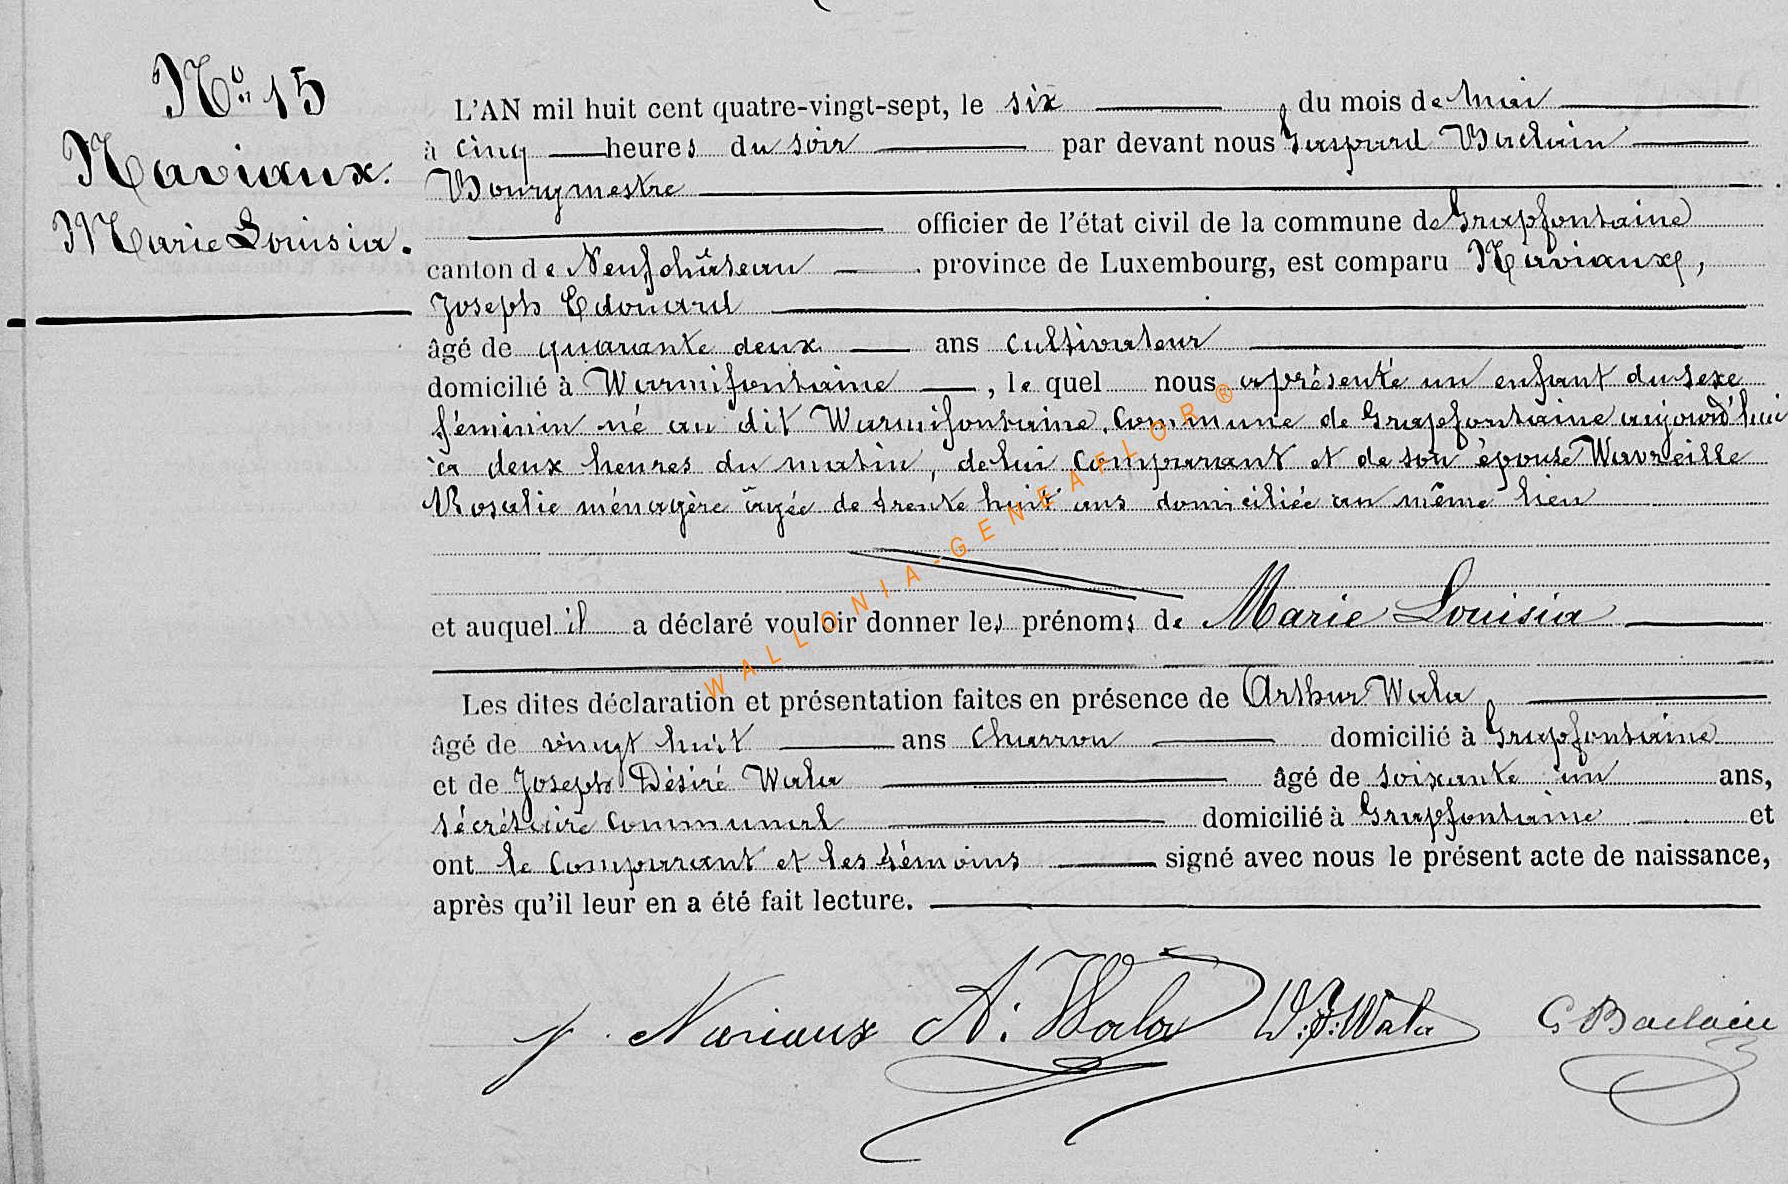 No 15
Naviaux.
Marie Louisia.
L'AN mil huit cent quatre-vingt-sept, le six du mois de mai
à cinq heures du soir par devant nous Gaspard Baclain
Bourgmestre
officier de l'état civil de la commune de Grapfontaine
canton de Neufchâteau province de Luxembourg, est comparu Naviaux,
Joseph Edouard
âgé de quarante deux ans cultivateur
domicilié à Warmifontaine, lequel nous a présenté un enfant du sexe
féminin né au dit Warmifontaine, Commune de Grapfontaine aujourd'hui
à deux heures du matin, de lui comparant et de son épouse Wavreille
Rosalie ménagère âgée de trente huit ans domiciliée au même lieu
et auquel il a déclaré vouloir donner les prénoms de Marie Louisia
Les dites déclaration et présentation faites en présence de Arthur Wala
âgé de vingt huit ans charron domicilié à Grapfontaine
et de Joseph Désiré Wala âgé de soixante un ans,
sécrétaire communal domicilié à Grapfontaine et
ont le comparant et les témoins signé avec nous le présent acte de naissance,
après qu'il leur en a été fait lecture.
J. Naviaux A. Wala D. J. Wala G Baclain
WALLONIA-GENEAFLOR®